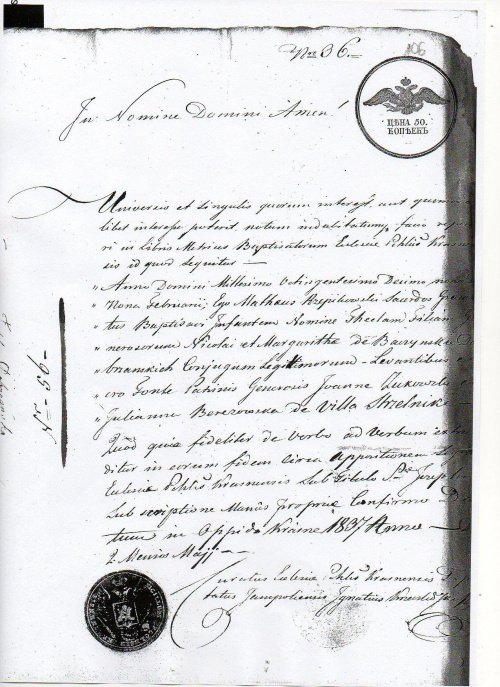 Nro 36.
106
ЦѢНА 50.
КОПѢЕКЪ
In Nomine Domini Amen!
Universis et Singulis quorum interest, aut quomo
libet interesse poterit notum indubitatumq. facio reperi
ri in Libris Metrices Baptisatorum Eclesiæ Pchlis Krasnen
sis id quod sequitur —
" Anno Domini Millesimo Octingentesimo Decimo
" Nona Februarii, Ego Mathæus Sacerdos
" tus Baptisavi Infantem Nomine Theclam Filiam G
" nerosorum Nicolai et Margarithæ de
" Conjugum Legitimorum — Levantibus e
" cro Fonte Patrinis Generosis Joanne Żukowski e
" Julianna Berezowska de Villa Strzelnik
Quod quia fideliter de verbo ad Verbum extra
ditur in eorum fidem circa appositionem
Eclesiæ Pchlis Krasnensis Sub Titulo
Sub scriptione Manus propriæ Confirmo — Da
tum in Oppido Krasne 1837 Anno —
2 Mensis Maji —
Curatus Eclesiæ Pchlis Krasnensis D
tatus Jampoliensis Ignatius
Nr. 36 —